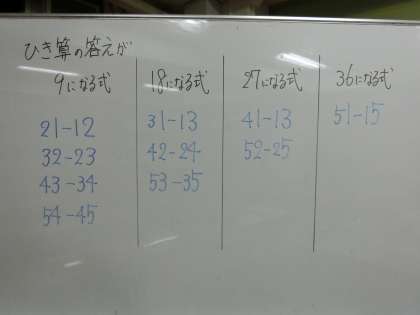 ひき算の答えが
9になる式
21-12
32-23
43-34
54-45
18になる式
31-13
42-24
53-35
27になる式
41-13
52-25
36になる式
51-15